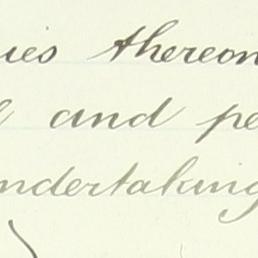 ies thereon
and pe
ndertaking